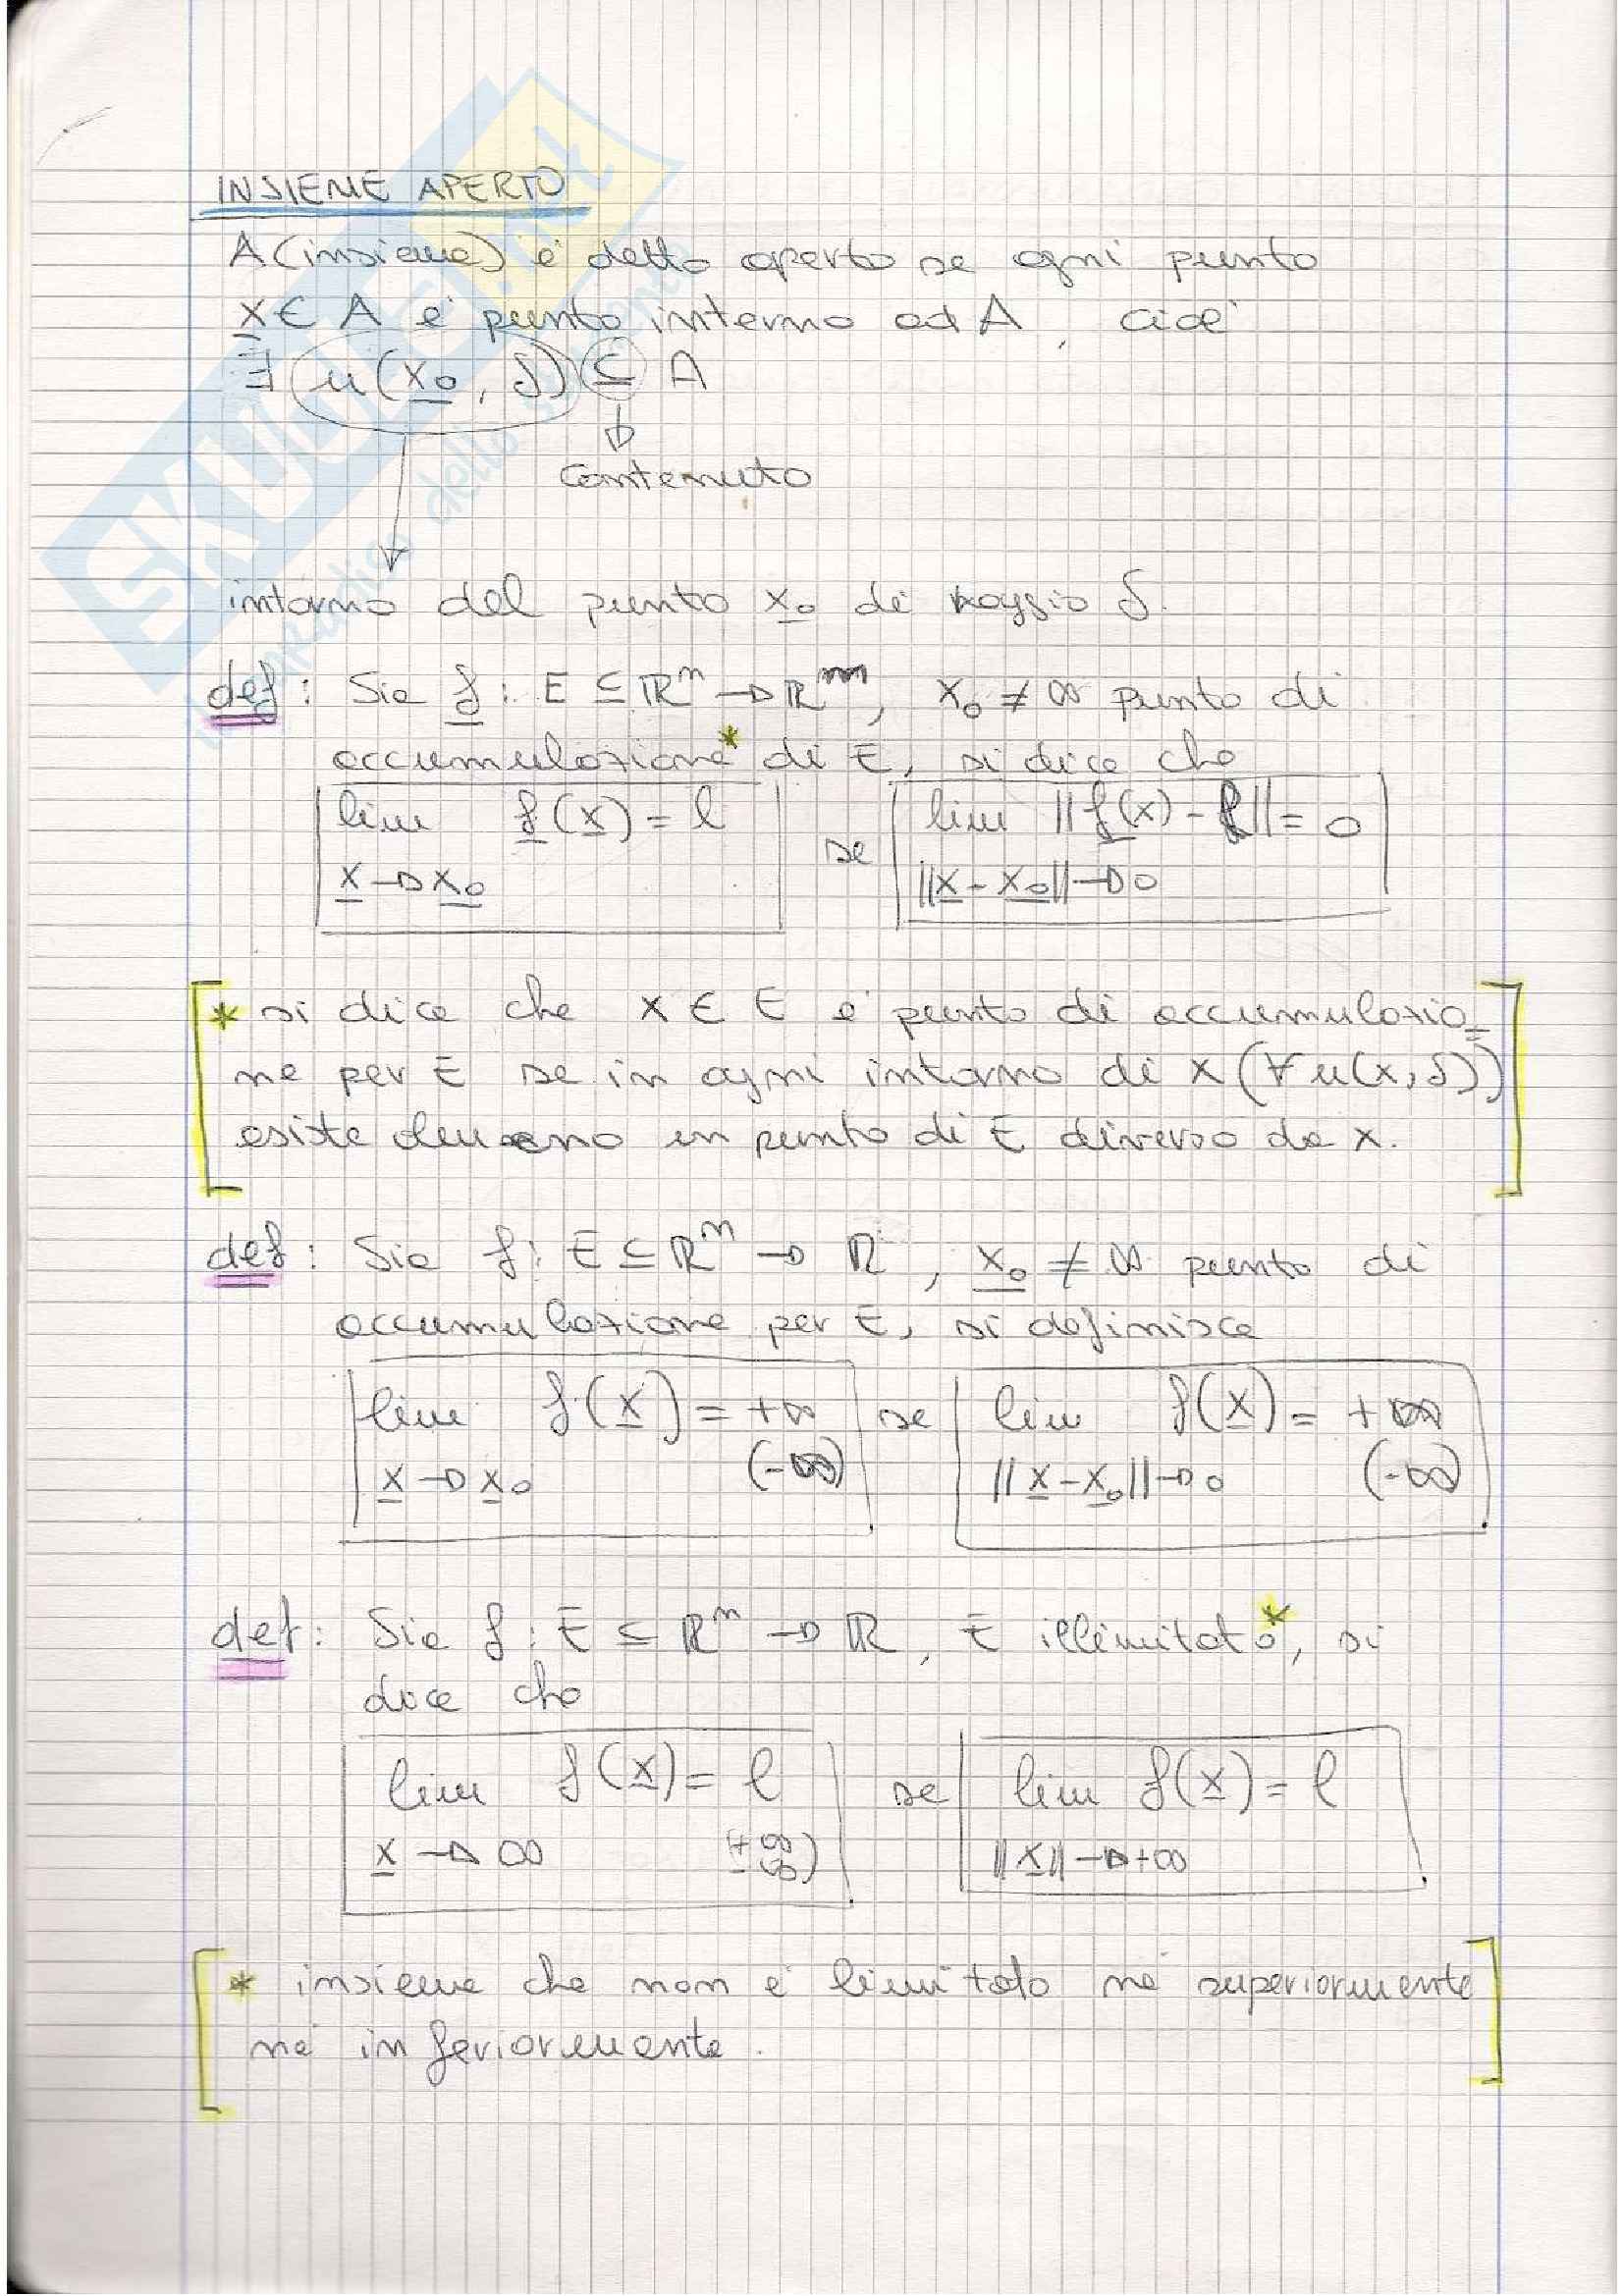 INSIEME APERTO
A (insieme) è detto aperto se ogni punto
x ∈ A è punto interno ad A, cioè
∃ u(x₀, δ) ⊆ A
contenuto
intorno del punto x₀ di raggio δ.
def: Sia f: E ⊆ ℝⁿ → ℝᵐ, x₀ ≠ ∞ punto di
accumulazione* di E, si dice che
lim f(x) = l se lim ||f(x) - l|| = 0
x → x₀ ||x - x₀|| → 0
* si dice che x ∈ E è punto di accumulazio=
ne per E se in ogni intorno di x (∀ u(x, δ))
esiste almeno un punto di E diverso da x.
def: Sia f: E ⊆ ℝⁿ → ℝ, x₀ ≠ ∞ punto di
accumulazione per E, si definisce
lim f(x) = +∞ se lim f(x) = +∞
x → x₀ (-∞) ||x - x₀|| → 0 (-∞)
def: Sia f: E ⊆ ℝⁿ → ℝ, E illimitato*, si
dice che
lim f(x) = l se lim f(x) = l
x → ∞ (+∞ -∞) ||x|| → +∞
* insieme che non è limitato né superiormente
né inferiormente.
SKUOLA.net